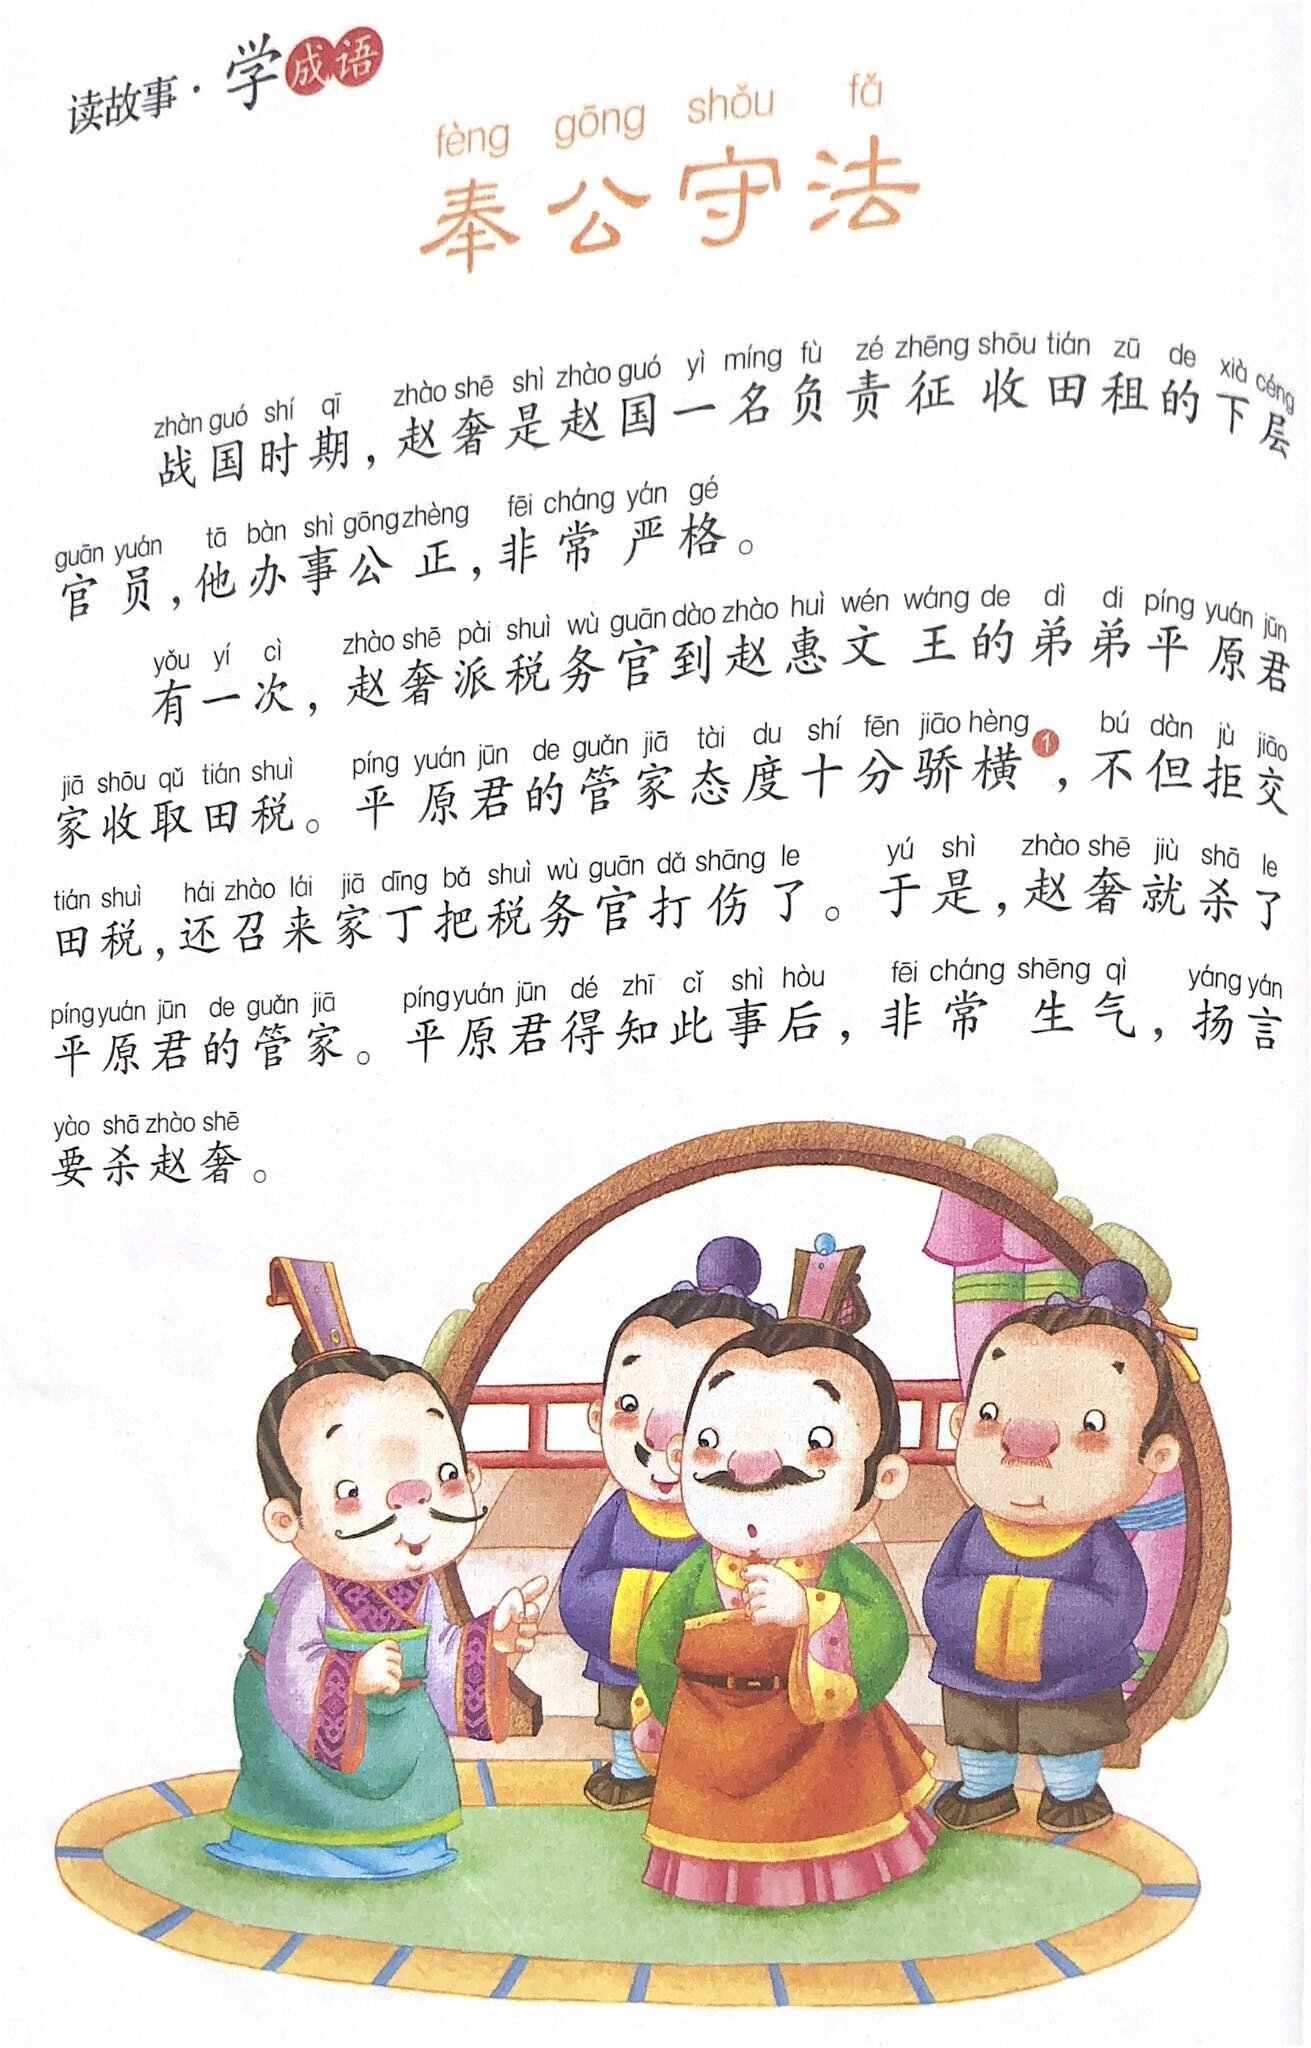 读故事·学成语
fèng gōng shǒu fǎ
奉公守法
zhàn guó shí qī zhào shē shì zhào guó yì míng fù zé zhēng shōu tián zū de xià céng
战国时期，赵奢是赵国一名负责征收田租的下层
guān yuán tā bàn shì gōng zhèng fēi cháng yán gé
官员，他办事公正，非常严格。
yǒu yí cì zhào shē pài shuì wù guān dào zhào huì wén wáng de dì di píng yuán jūn
有一次，赵奢派税务官到赵惠文王的弟弟平原君
jiā shōu qǔ tián shuì píng yuán jūn de guǎn jiā tài du shí fēn jiāo hèng bú dàn jù jiāo
家收取田税。平原君的管家态度十分骄横1，不但拒交
tián shuì hái zhào lái jiā dīng bǎ shuì wù guān dǎ shāng le yú shì zhào shē jiù shā le
田税，还召来家丁把税务官打伤了。于是，赵奢就杀了
píng yuán jūn de guǎn jiā píng yuán jūn dé zhī cǐ shì hòu fēi cháng shēng qì yáng yán
平原君的管家。平原君得知此事后，非常生气，扬言
yào shā zhào shē
要杀赵奢。